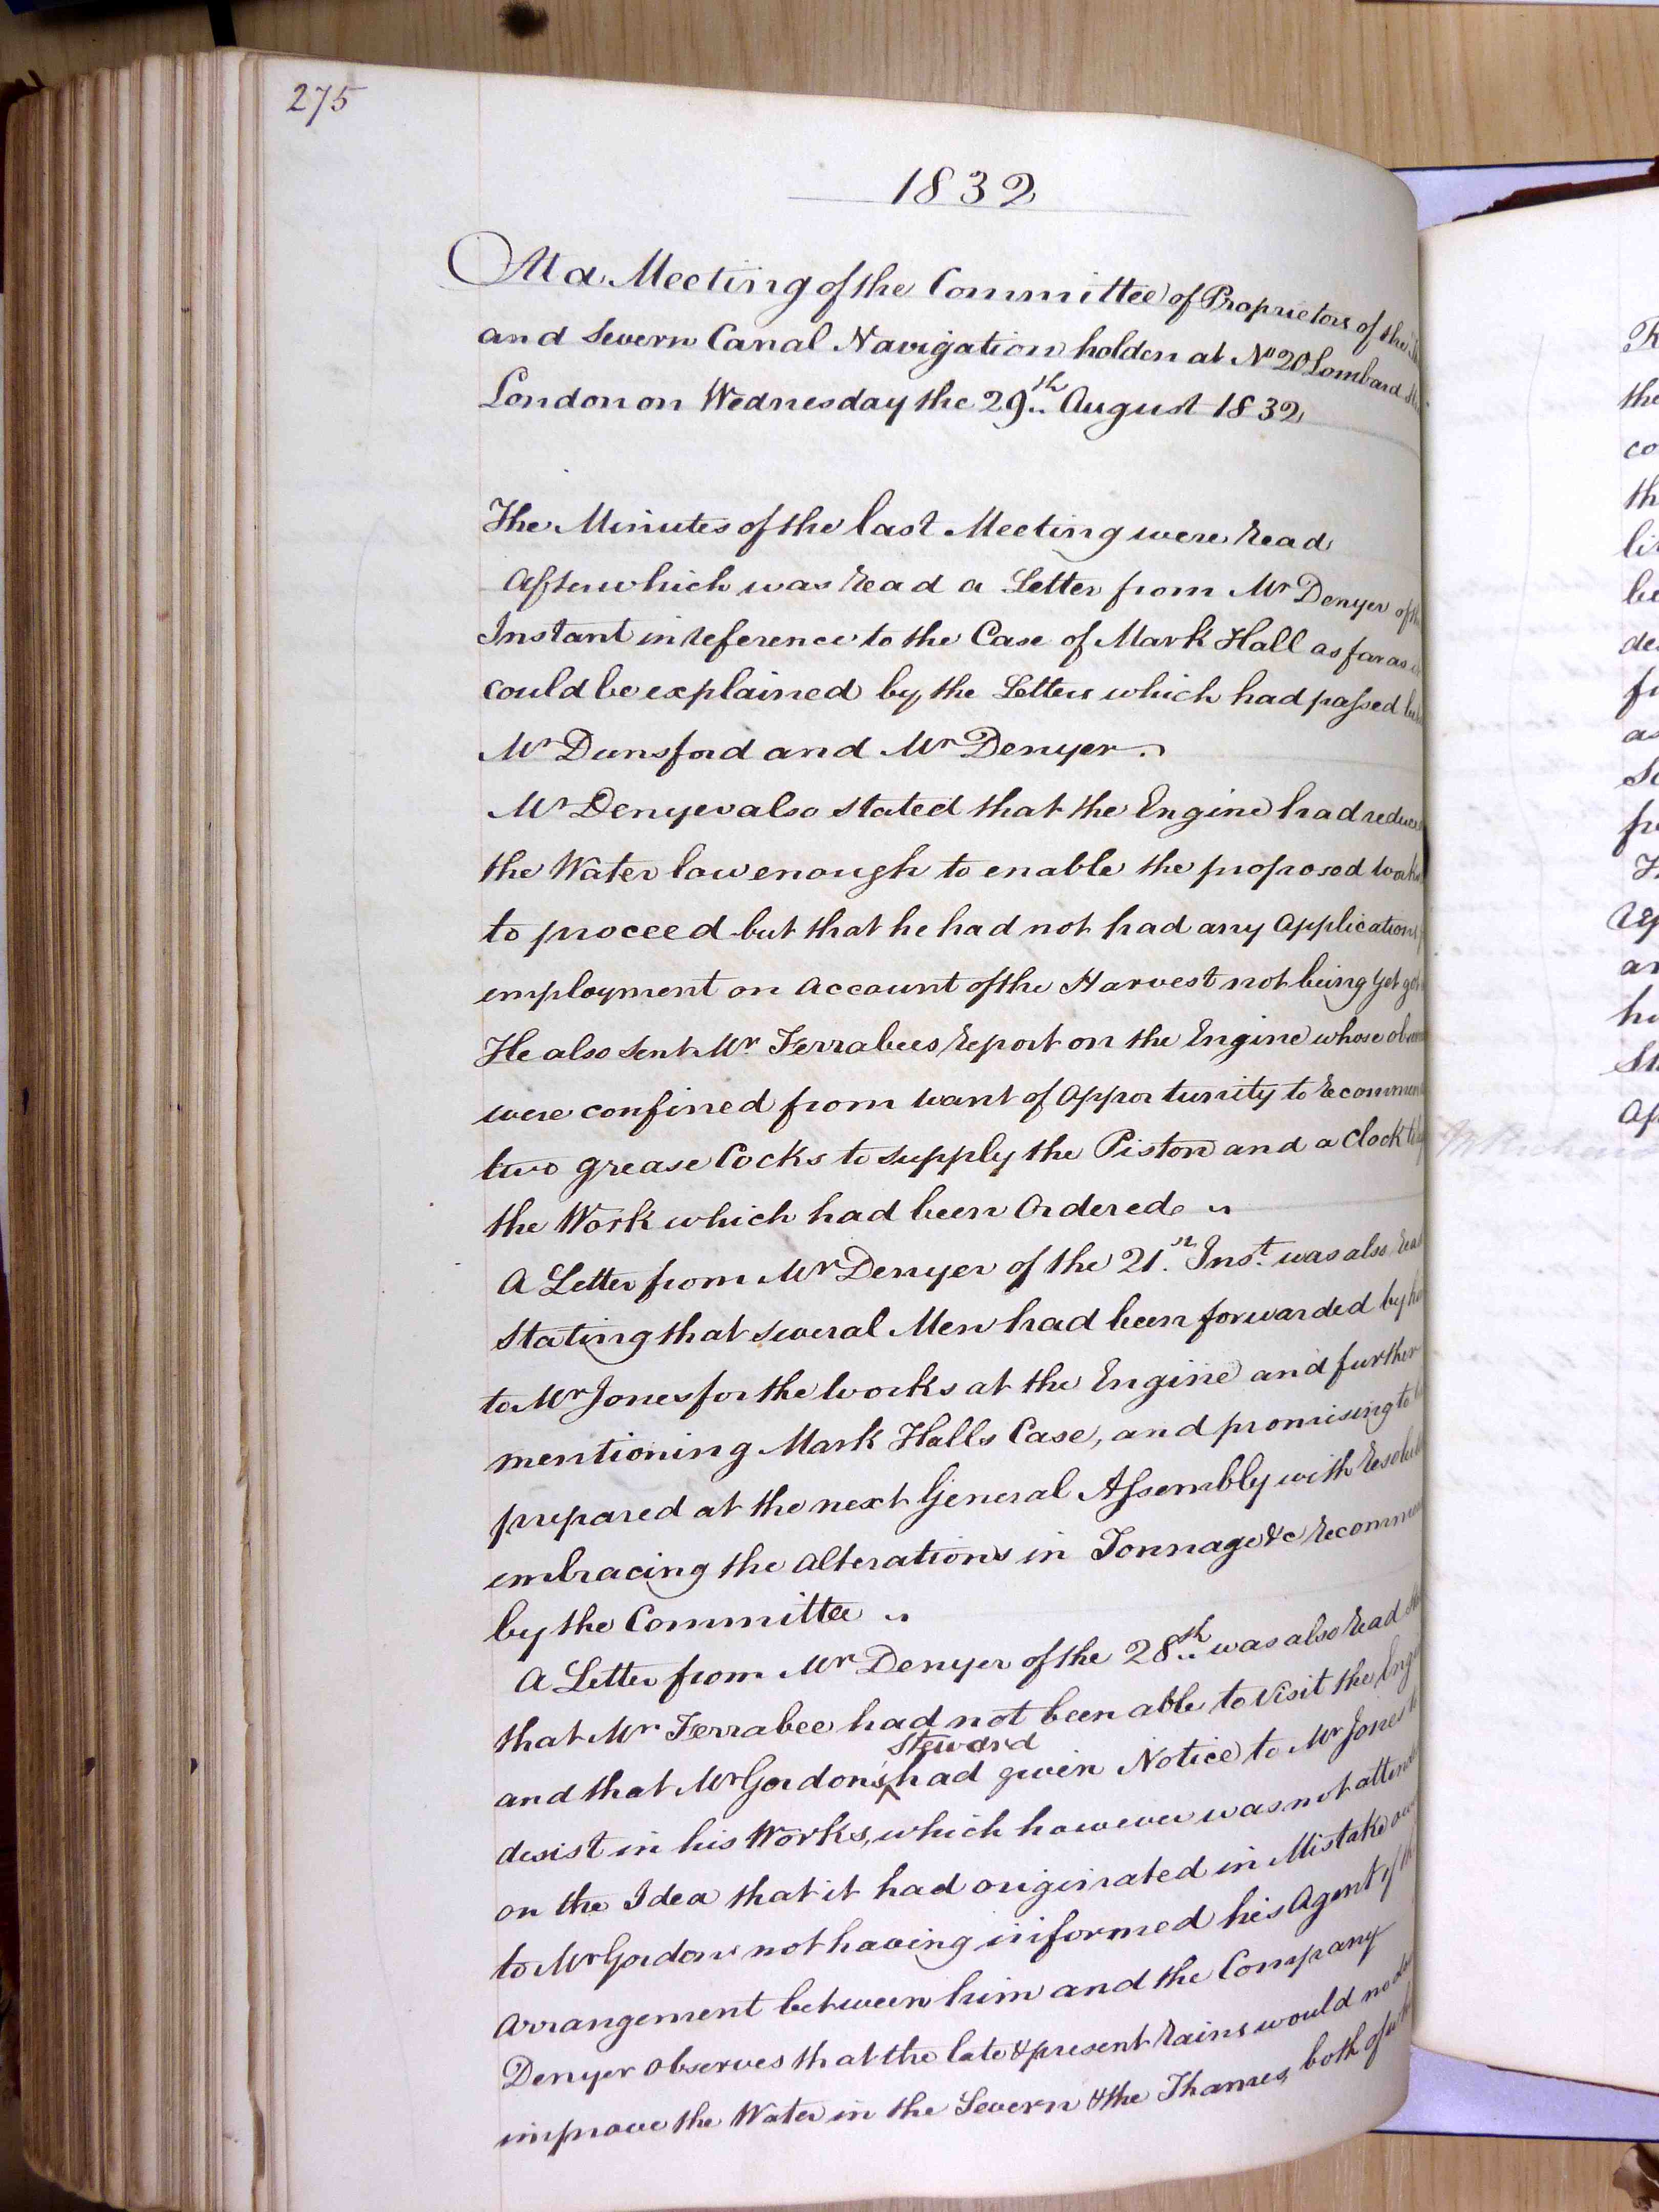 275
1832
At a Meeting of the Committee of Proprietors of the
and Severn Canal Navigation holden at No 20 Lombard
London on Wednesday the 29th August 1832
The Minutes of the last Meeting were read
After which was read a Letter from Mr Denyer of
Instant in reference to the Case of Mark Hall as far as
could be explained by the Letters which had passed
Mr Dunsford and Mr Denyer.
Mr Denyer also stated that the Engine had
the Water low enough to enable the proposed
to proceed but that he had not had any application
employment on account of the Harvest not being yet
He also sent Mr Ferrabees report on the Engine whose
were confined from want of opportunity to
two grease Cocks to supply the Piston and a Clock
the Work which had been Ordered
A Letter from Mr Denyer of the 21st Inst. was also
stating that several Men had been forwarded by
to Mr Jones for the works at the Engine and further
mentioning Mark Halls Case, and promising to
prepared at the next General Assembly with
embracing the alterations in Tonnage &c
by the Committee
A Letter from Mr Denyer of the 28th was also read
that Mr Ferrabee had not been able to visit the
steward
and that Mr Gordon's had given Notice to Mr Jones
desist in his Works, which however was not
on the Idea that it had originated in Mistake
to Mr Gordons not having informed his Agent of
arrangement between him and the Company
Denyer observes that the late & present rains would
improve the Water in the Severn & the Thames, both of
R
the
co
th
li
be
de
fu
as
an
ap